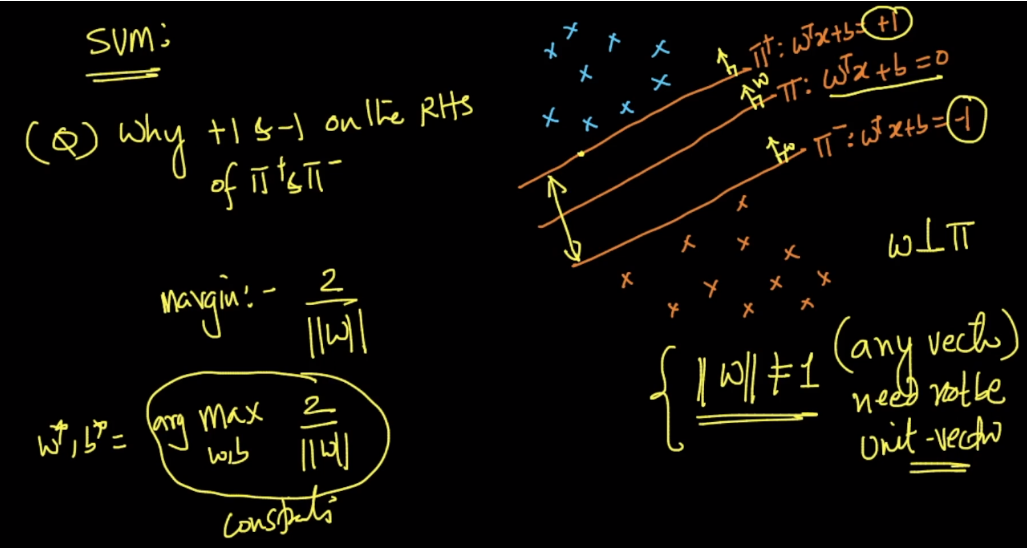 SVM:
(Q) Why +1 & -1 on the RHS
of π⁺ & π⁻
margin:- 2/||w||
w*, b* = arg max w,b 2/||w||
π⁺: wᵀx+b = +1
w
π: wᵀx+b = 0
w
π⁻: wᵀx+b = -1
w ⊥ π
||w|| ≠ 1 (any vector)
need not be
unit-vector